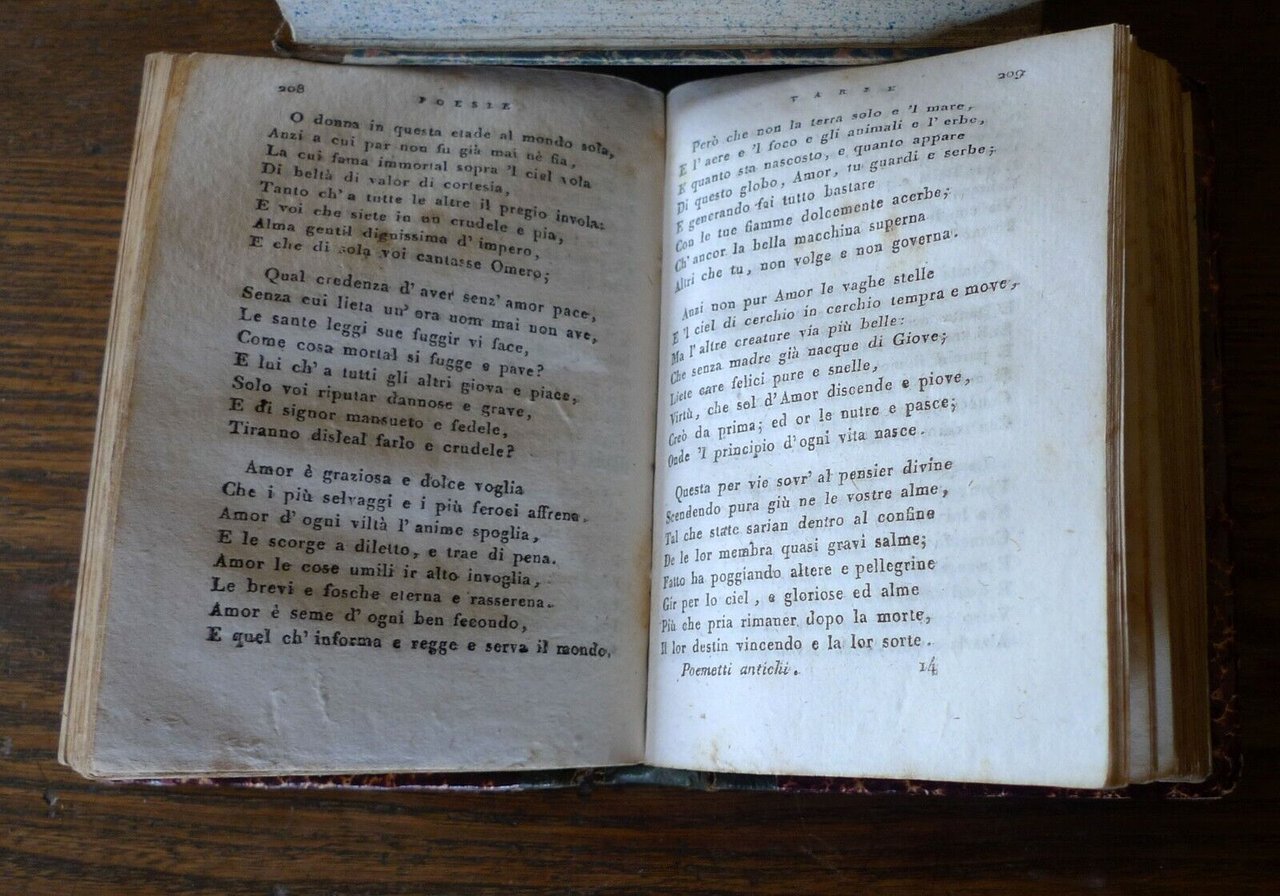 208
POESIE
O donna in questa etade al mondo sola,
Anzi a cui par non fu già mai nè fia,
La cui fama immortal sopra 'l ciel vola
Di beltà di valor di cortesia,
Tanto ch' a tutte le altre il pregio invola:
E voi che siete in un crudele e pia,
Alma gentil dignissima d' impero,
E che di sola voi cantasse Omero;
Qual credenza d' aver senz' amor pace,
Senza cui lieta un' ora uom mai non ave,
Le sante leggi sue fuggir vi face,
Come cosa mortal si fugge e pave?
E lui ch' a tutti gli altri giova e piace,
Solo voi riputar dannose e grave,
E di signor mansueto e fedele,
Tiranno disleal farlo e crudele?
Amor è graziosa e dolce voglia
Che i più selvaggi e i più feroci affrena.
Amor d' ogni viltà l' anime spoglia,
E le scorge a diletto, e trae di pena.
Amor le cose umili ir alto invoglia,
Le brevi e fosche eterna e rasserena.
Amor è seme d' ogni ben fecondo,
E quel ch' informa e regge e serva il mondo.
VARIE
209
Però che non la terra solo e 'l mare,
E l' aere e 'l foco e gli animali e l' erbe,
E quanto sta nascosto, e quanto appare
Di questo globo, Amor, tu guardi e serbe;
E generando fai tutto bastare
Con le tue fiamme dolcemente acerbe;
Ch' ancor la bella macchina superna
Altri che tu, non volge e non governa.
Anzi non pur Amor le vaghe stelle
E 'l ciel di cerchio in cerchio tempra e move,
Ma l' altre creature via più belle:
Che senza madre già nacque di Giove;
Liete care felici pure e snelle,
Virtù, che sol d' Amor discende e piove,
Creò da prima; ed or le nutre e pasce;
Onde 'l principio d' ogni vita nasce.
Questa per vie sovr' al pensier divine
Scendendo pura giù ne le vostre alme,
Tal che state sarian dentro al confine
De le lor membra quasi gravi salme;
Fatto ha poggiando altere e pellegrine
Gir per lo ciel, e gloriose ed alme
Più che pria rimaner dopo la morte,
Il lor destin vincendo e la lor sorte.
Poemetti antichi. 14